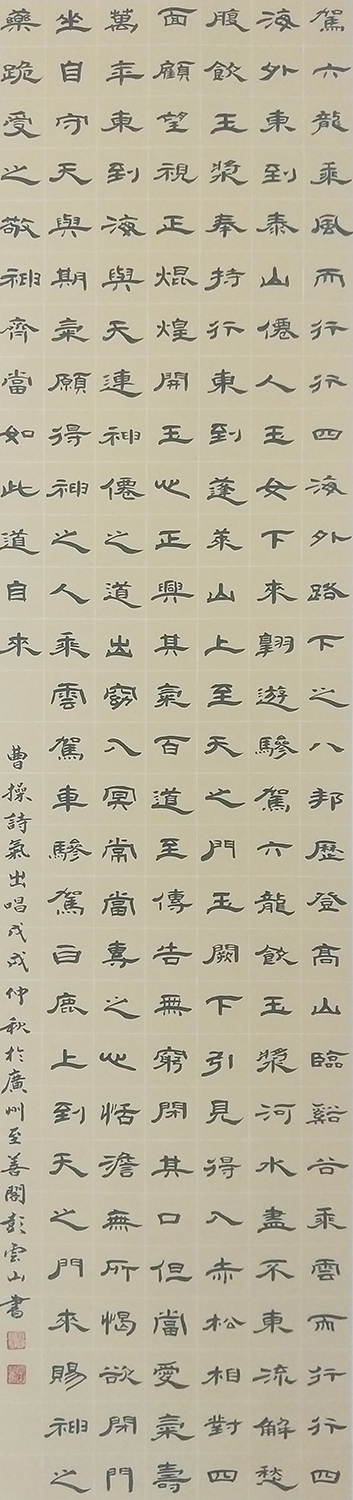 駕六龍乘風而行行四海外路下之八邦歷登高山臨谿谷乘雲而行行四
海外東到泰山僊人玉女下來翱遊驂駕六龍飲玉漿河水盡不東流解愁
腹飲玉漿奉持行東到蓬萊山上至天之門玉闕下引見得入赤松相對四
面顧望視正焜煌開玉心正興其氣百道至傳告無窮閉其口但當愛氣壽
萬年東到海與天連神僊之道出窈入冥常當專之心恬澹無所愒欲閉門
坐自守天與期氣願得神之人乘雲駕車驂駕白鹿上到天之門來賜神之
藥跪受之敬神齊當如此道自來
曹操詩氣出唱戊戌仲秋於廣州至善閣彭雲山書